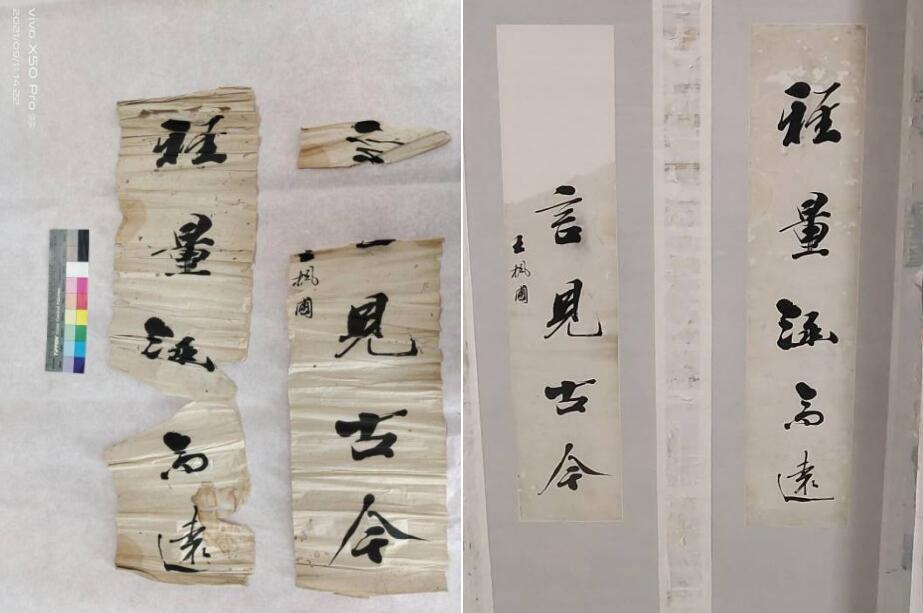 vivo X50 Pro
2021/09/11 14:22
雅量涵高遠
見古今
王楓圃
雅量涵高遠
言見古今
王楓圃